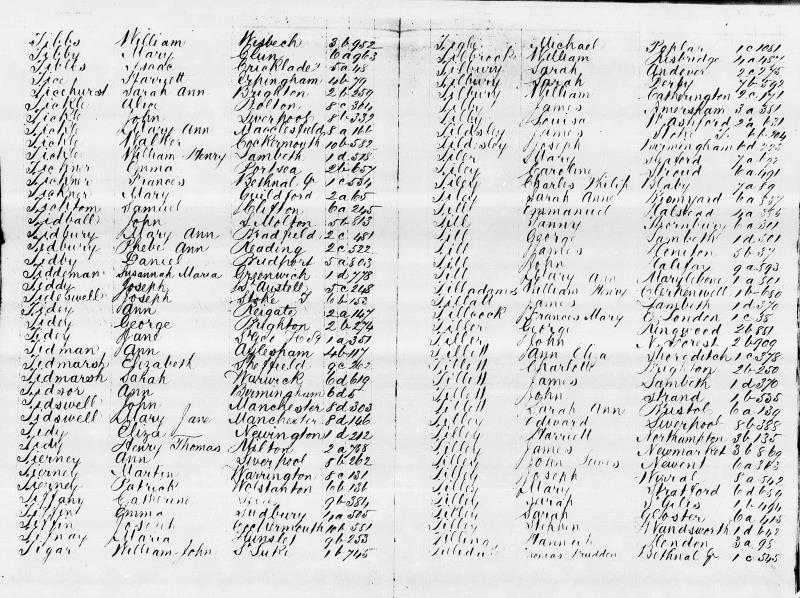 Tibbs William Wisbech 3 b 952
Tibby Mary Clun 6 a 963
Tibbles Isaac Cricklade 5 a 48
Tice Harriett Erpingham 4 b 79
Ticehurst Sarah Ann Brighton 2 b 259
Tickle Alice Bolton 8 c 364
Tickle John Liverpool 8 b 332
Tickle Mary Ann Macclesfield 8 a 166
Tickle Walter Cockermouth 10 b 582
Tickle William Henry Lambeth 1 d 378
Tickner Emma Portsea 2 b 657
Tickner Frances Bethnal G 1 c 534
Tickner Mary Guildford 2 a 65
Samuel Clifton 6 a 245
Tidball John 5 b 813
Tidbury Mary Ann Bradfield 2 c 481
Tidbury Phebe Ann Reading 2 c 522
Tidby Daniel Bridport 5 a 503
Tiddeman Susannah Maria Greenwich 1 d 778
Tiddy Joseph St Austell 5 c 248
Tideswell Joseph Stoke T 6 b 153
Tidey Ann Reigate 2 a 147
Tidey George Brighton 2 b 274
Tidey Jane 1 a 351
Tidman Ann Aylesham 4 b 117
Tidmarsh Elizabeth Sheffield 9 c 262
Tidmarsh Sarah Warwick 6 d 619
Tidsor Ann Birmingham 6 d 5
Tidswell John Manchester 8 d 303
Tidswell Mary Jane Manchester 8 d 146
Tidy Eliza J Newington 1 d 212
Tidy Henry Thomas Milton 2 a 788
Tierney Ann Liverpool 8 b 262
Tierney Martin Warrington 8 c 131
Tierney Patrick Wolstanton 6 b 136
Tiffany Catherine 9 b 384
Tiffin Emma Sudbury 4 a 505
Tiffin Joseph Cockermouth 10 b 551
Tifnay Maria Hunslet 9 b 253
Tigar William John St Luke 1 b 745
Tighe Michael Poplar 1 c 1051
Tilbrook William Risbridge 4 a 457
Tilbury Sarah Andover 2 c 245
Tilbury Sarah Derby 7 b 592
Tilbury William Catherington 2 c 491
Tilby James Amersham 3 a 351
Tilby Louisa W Ashford 2 a 631
Tildsley James Stoke T. 6 b 204
Tildsley Joseph Birmingham 6 d 225
Tiler Mary Seaford 7 a 97
Tiley Caroline Stroud 6 a 491
Tiley Charles Philip Blaby 7 a 89
Tiley Sarah Anne Bromyard 6 a 537
Till Emmanuel Halstead 4 a 556
Till Fanny Thornbury 6 a 311
Till George Lambeth 1 d 301
Till James Honiton 5 b 37
Till John Halifax 9 a 593
Till Mary Ann Marylebone 1 a 501
Tilladams William Henry Clerkenwell 1 b 650
Tillall James Lambeth 1 d 370
Tillcock Frances Mary E London 1 c 38
Tiller George Ringwood 2 b 881
Tiller John N. Forest 2 b 909
Tillett Ann Eliza Shoreditch 1 c 378
Tillett Charlotte Brighton 2 b 250
Tillett James Lambeth 1 d 370
Tillett John Strand 1 b 535
Tillett Sarah Ann Bristol 6 a 139
Tilley Edward Liverpool 8 b 388
Tilley Harriett Northampton 3 b 135
Tilley James Newmarket 3 b 869
Tilley John James Newent 6 a 363
Tilley Joseph Wirral 8 a 542
Tilley Mary Stratford 6 d 654
Tilley Sarah St Giles 1 b 494
Tilley Sarah Gloster 6 a 415
Tilley Stephen Wandsworth 1 d 642
Tilling Hannah Hendon 3 a 95
Thomas Prudden Bethnal G 1 c 545